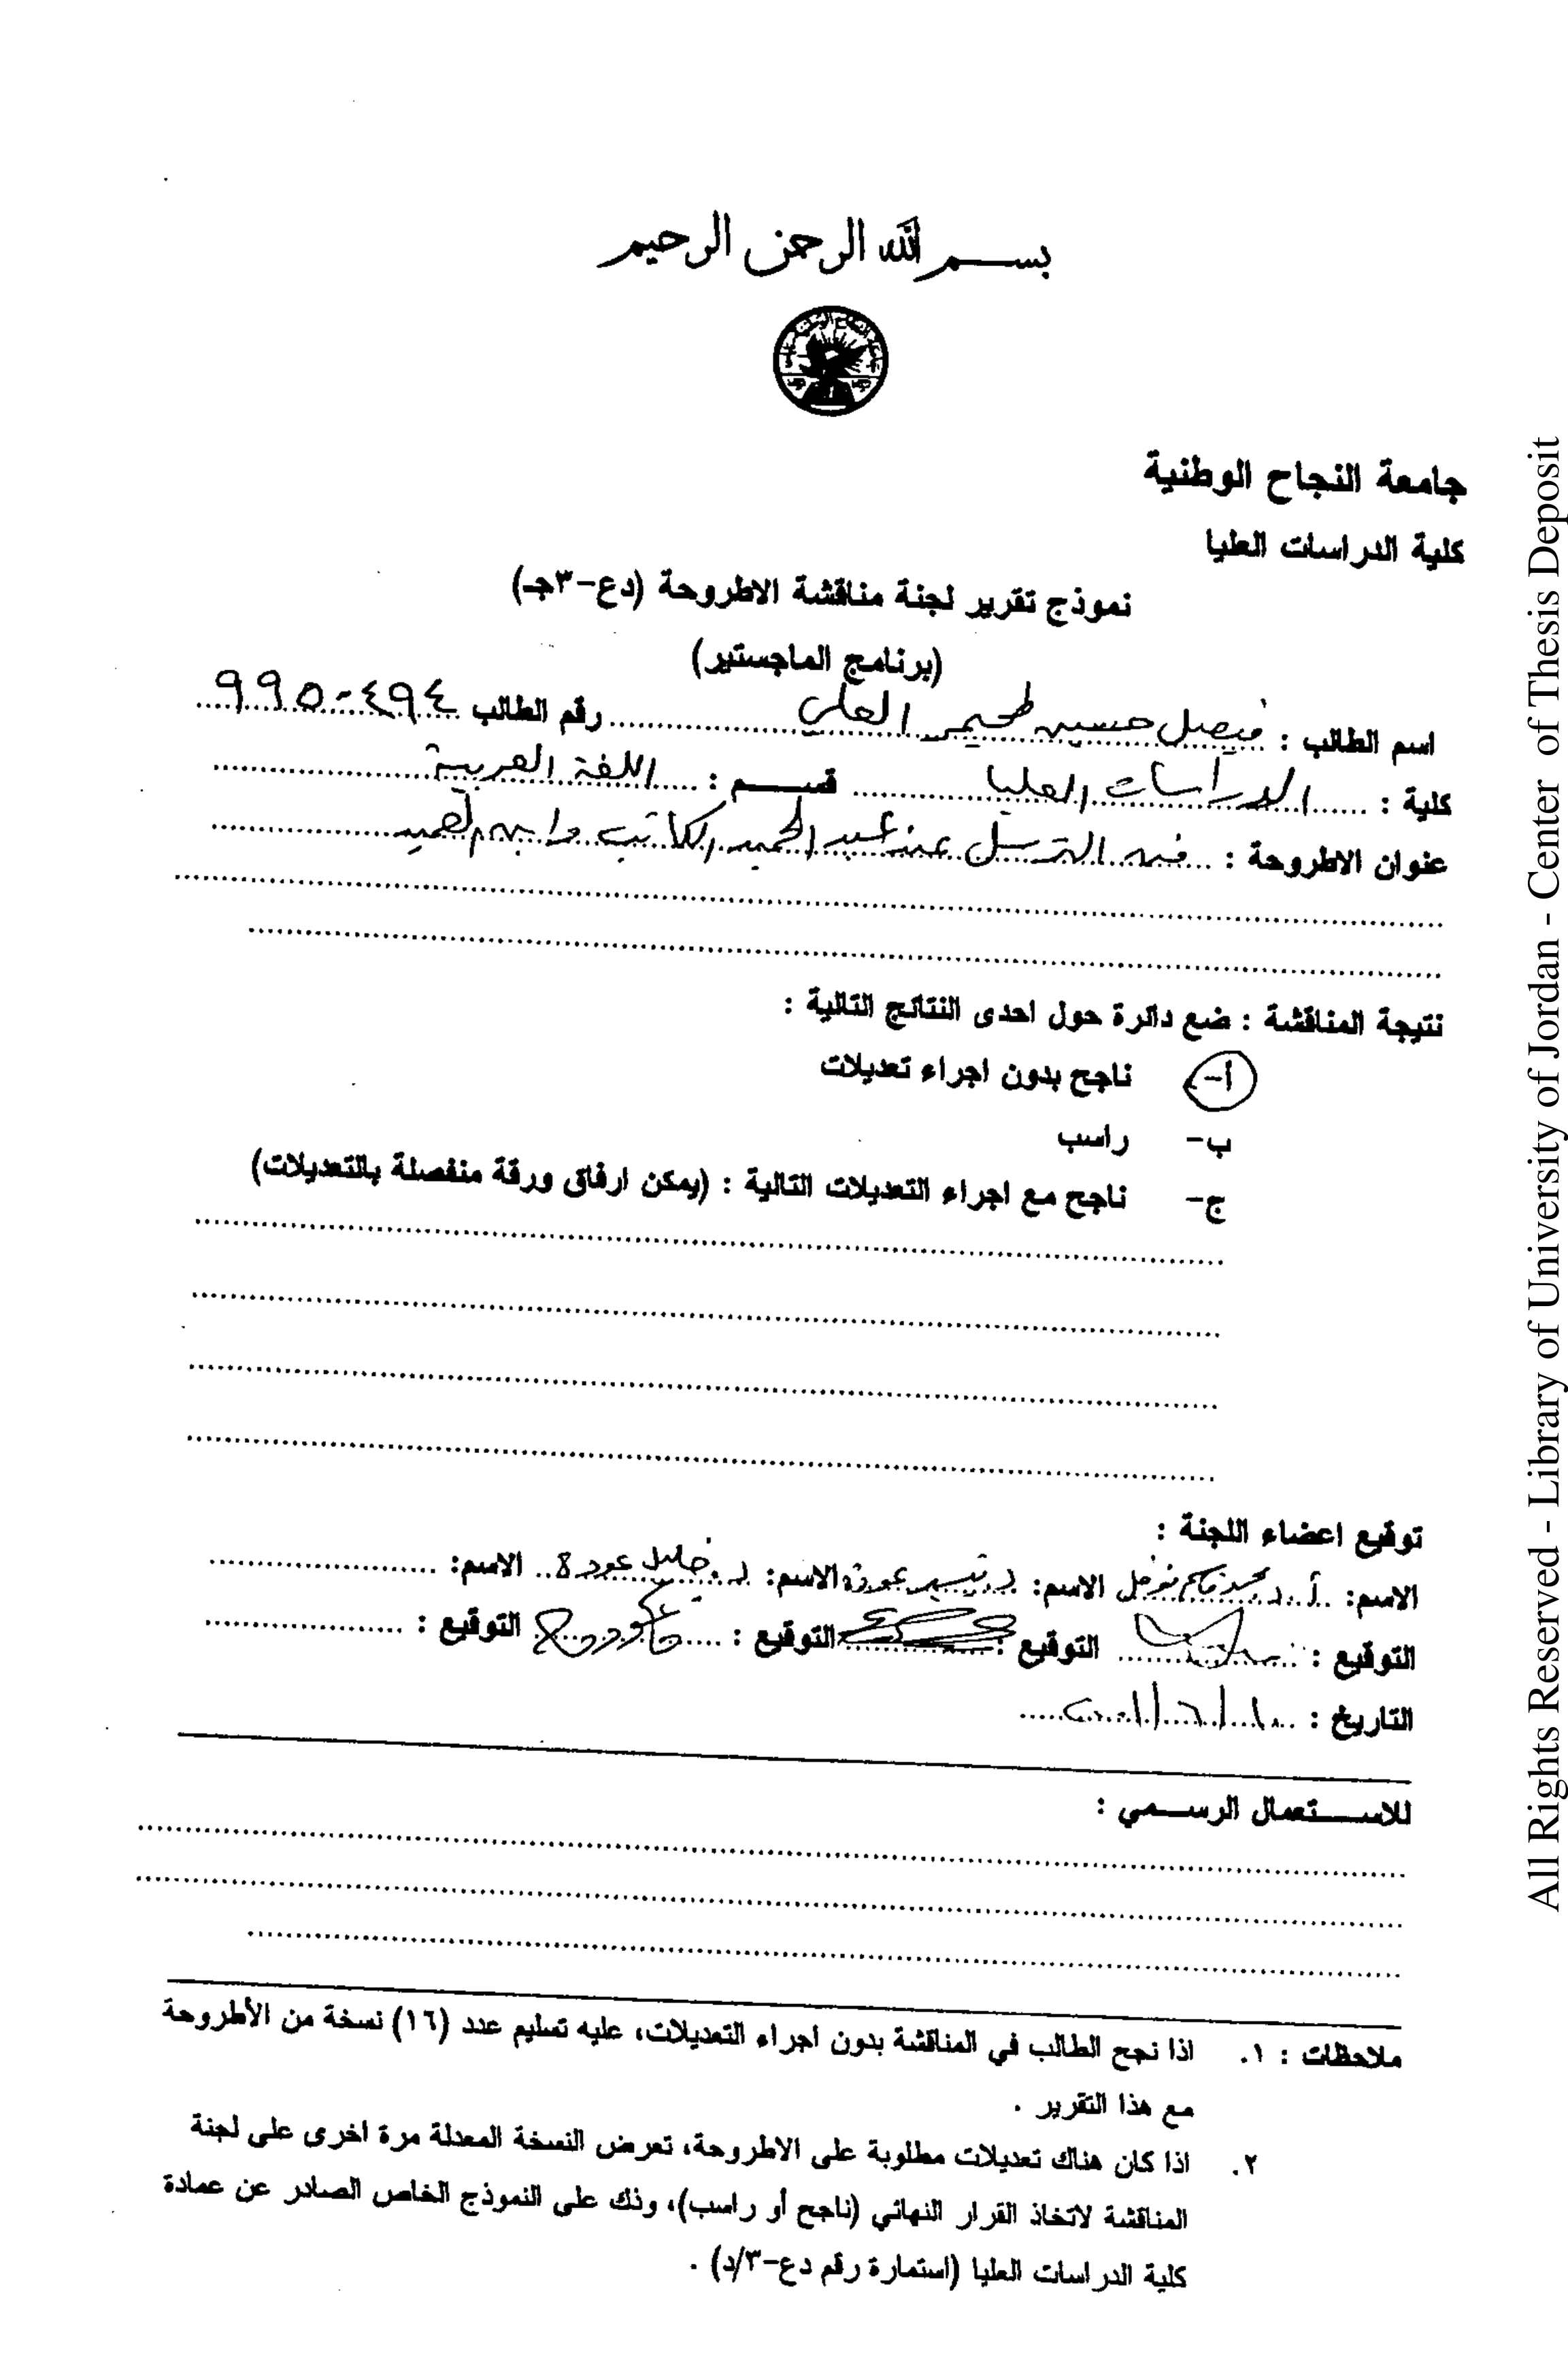 بسم الله الرحمن الرحيم
جامعة النجاح الوطنية
كلية الدراسات العليا
نموذج تقرير لجنة مناقشة الاطروحة (دع-٣جـ)
(برنامج الماجستير)
اسم الطالب : فيصل حسين طحيمر العلي رقم الطالب ٩٩٥٠٤٩٤
كلية : الدراسات العليا قسم : اللغة العربية
عنوان الاطروحة : فن الترسل عند عبد الحميد الكاتب وابن العميد
نتيجة المناقشة : ضع دائرة حول احدى النتائج التالية :
أ- ناجح بدون اجراء تعديلات
ب- راسب
ج- ناجح مع اجراء التعديلات التالية : (يمكن ارفاق ورقة منفصلة بالتعديلات)
توقيع اعضاء اللجنة :
الاسم: أ.د محمد نوفل الاسم: د. تيسير عودة الاسم: د. خليل عودة الاسم:
التوقيع : التوقيع : التوقيع : التوقيع :
التاريخ :
للاستعمال الرسمي :
ملاحظات : ١. اذا نجح الطالب في المناقشة بدون اجراء التعديلات، عليه تسليم عدد (١٦) نسخة من الأطروحة
مع هذا التقرير .
٢. اذا كان هناك تعديلات مطلوبة على الاطروحة، تعرض النسخة المعدلة مرة اخرى على لجنة
المناقشة لاتخاذ القرار النهائي (ناجح أو راسب)، وذلك على النموذج الخاص الصادر عن عمادة
كلية الدراسات العليا (استمارة رقم دع-٣/د) .
All Rights Reserved - Library of University of Jordan - Center of Thesis Deposit